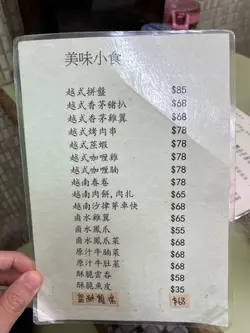 美味小食
越式拼盤 $85
越式香茅豬扒 $68
越式香茅雞翼 $68
越式烤肉串 $78
越式蒸蝦 $78
越式咖喱雞 $78
越式咖喱腩 $78
越南春卷 $78
越南肉餅,肉扎 $65
越南沙律芽車快 $68
鹵水雞翼 $65
鹵水鳳爪 $55
鹵水鳳爪菜 $68
原汁牛腩菜 $68
原汁牛肚菜 $68
酥脆雲吞 $58
酥脆魚皮 $35
$68